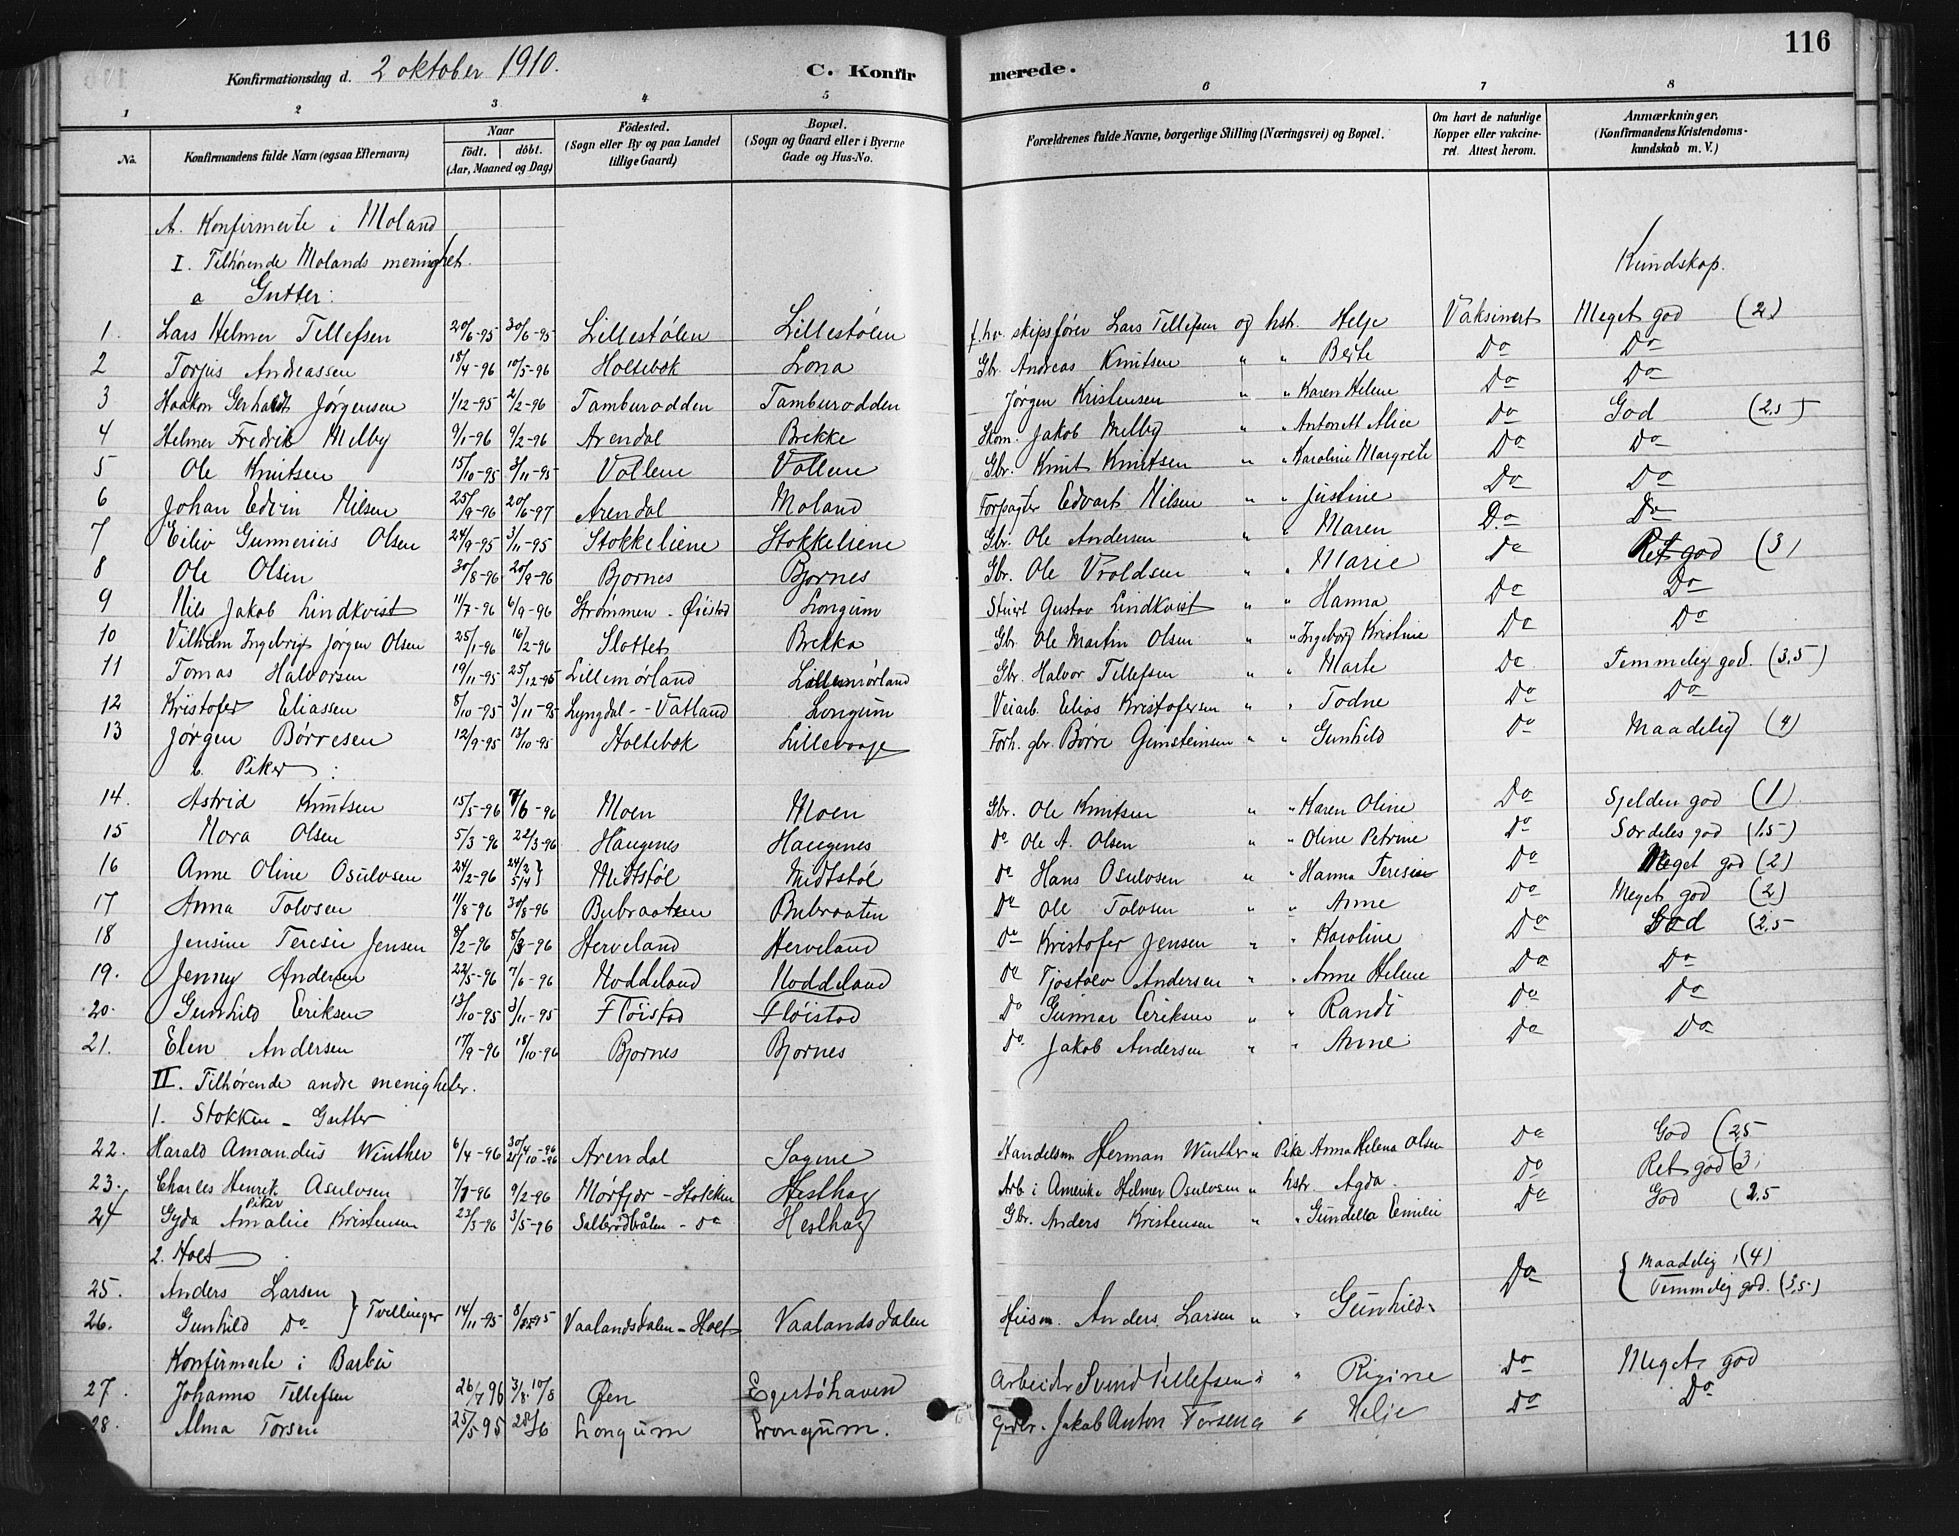 116
Konfirmationsdag d. 2 oktober 1910. C. Konfirmerede.
1 2 3 4 5 6 7 8
No. Konfirmandens fulde Navn (ogsaa Efternavn) Naar født. døbt. (Aar, Maaned og Dag) Födested. (Sogn eller By og paa Landet tillige Gaard) Bopæl. (Sogn og Gaard eller i Byerne Gade og Hus-No. Forældrenes fulde Navne, borgerlige Stilling (Næringsvei) og Bopæl. Om havt de naturlige Kopper eller vakcineret. Attest herom. Anmærkninger. (Konfirmandens Kristendomskundskab m. V.)
A. Konfirmerte i Moland
I. Tilhørende Molands menighet. Kundskap.
a Gutter:
1. Lars Helmer Tellefsen 20/6-95 30/6-95 Lillestølen Lillestølen f.hv. skipsfører Lars Tellefsen og hstr. Helje Vaksinert Meget god (2)
2 Torjus Andreassen 18/4-96 10/5-96 Holtebok Lona Gbr. Andreas Knutsen " " Berte Do Do
3 Haakon Gerhardt Jørgensen 1/12-95 2/2-96 Tamburodden Tamburodden Jørgen Kristensen " " Karen Helene Do Do
4 Helmer Fredrik Melby 9/1-96 9/2-96 Arendal Brekke Skom. Jakob Melby " " Antonett Alice Do God (2,5)
5 Ole Knutsen 15/10-95 3/11-95 Vollene Vollene Gbr. Knut Knutsen " " Karoline Margrete Do Do
6 Johan Edvin Nilsen 25/9-96 20/6-97 Arendal Moland Forpagter Edvart Nilsen " " Justine Do Do
7 Eiliv Gunnerius Olsen 24/9-95 3/11-95 Stokkeliene Stokkeliene Gbr. Ole Andersen " " Maren Do Do
8 Ole Olsen 30/8-96 20/9-96 Bjornes Bjornes Gbr. Ole Vroldsen " " Marie Do Ret god (3)
9 Nils Jakob Lindkvist 11/7-96 6/9-96 Strømmen - Øiestad Longum Stuert Gustav Lindkvist " " Hanna Do Do
10 Vilhelm Ingebrigt Jørgen Olsen 25/1-96 16/2-96 Slottet Brekka Gbr. Ole Martin Olsen " " Ingeborg Kristine Do Do
11 Tomas Halvorsen 19/11-95 25/12-95 Lillemørland Lillemørland Gbr. Halvor Tellefsen " " Marte Do Temmelig god. (3,5)
12 Kristofer Eliassen 8/10-95 3/11-95 Lyngdal - Vatland Longum Veiarb. Elias Kristofersen " " Todne Do Do
13 Jørgen Børresen 12/9-95 13/10-95 Holtebok Lillevaaje Forh. gbr. Børre Gunsteinsen " " Gunhild Do Maadelig (4)
b. Piker:
14. Astrid Knutsen 15/5-96 7/6-96 Moen Moen Gbr. Ole Knutsen " " Karen Oline Do Sjelden god (1)
15 Nora Olsen 5/3-96 22/3-96 Haugenes Haugenes Do Ole A. Olsen " " Oline Petrine Do Særdeles god (1,5)
16 Anne Oline Osulvsen 24/2-96 24/2 5/4} Midtstøl Midtstøl Do Hans Osulvsen " " Hanna Teresie Do Meget god (2)
17 Anna Tolvsen 11/8-96 30/8-96 Bubraaten Bubraaten Do Ole Tolvsen " " Anne Do Meget god (2)
18 Jensine Teresie Jensen 8/2-96 8/3-96 Herveland Herveland Do Kristofer Jensen " " Karoline Do God (2,5
19. Jenny Andersen 22/5-96 7/6-96 Noddeland Noddeland Do Tjostolv Andersen " " Anne Helene Do Do
20. Gunhild Eriksen 13/10-95 3/11-95 Fløistad Fløistad Do Gunnar Eriksen " " Randi Do Do
21. Elen Andersen 17/9-96 18/10-96 Bjornes Bjornes Do Jakob Andersen " " Anne Do Do
II. Tilhørende andre menigheter.
1. Stokken - Gutter
22. Harald Amandus Winther 6/4-96 Arendal Sagene Handelsm Herman Winther " Pike Anna Helena Olsen Do God (2,5
23. Charles Henrik Osulvsen 7/1-96 9/2-96 Mørfjær - Stokken Hesthag Arb i Amerika Helmer Osulvsen " hstr Agda. Do Ret god (3)
Piker
24 Gyda Amalie Kristensen 23/3-96 3/5-96 Sallerødbålen - Do Hesthag Gbr. Anders Kristensen " " Gundella Emilie Do God (2,5
2. Holt
25. Anders Larsen Do { Maadelig (4)
26. Gunhild Do } Tvillinger 14/11-95 8/12-95 Vaalandsdalen - Holt Vaalandsdalen Husm. Anders Larsen " " Gunhild Temmelig god. (3,5)
Konfirmerte i Barbu
27. Johanna Tellefsen 26/7 96 3/8 10/8 Øen Egertshaven Arbeider Svend Tellefsen " " Rigine Do Meget god
28. Alma Torsen 25/5 95 28/6 Longum Longum. Grdbr. Jakob Anton Torsen og " Helje Do Do